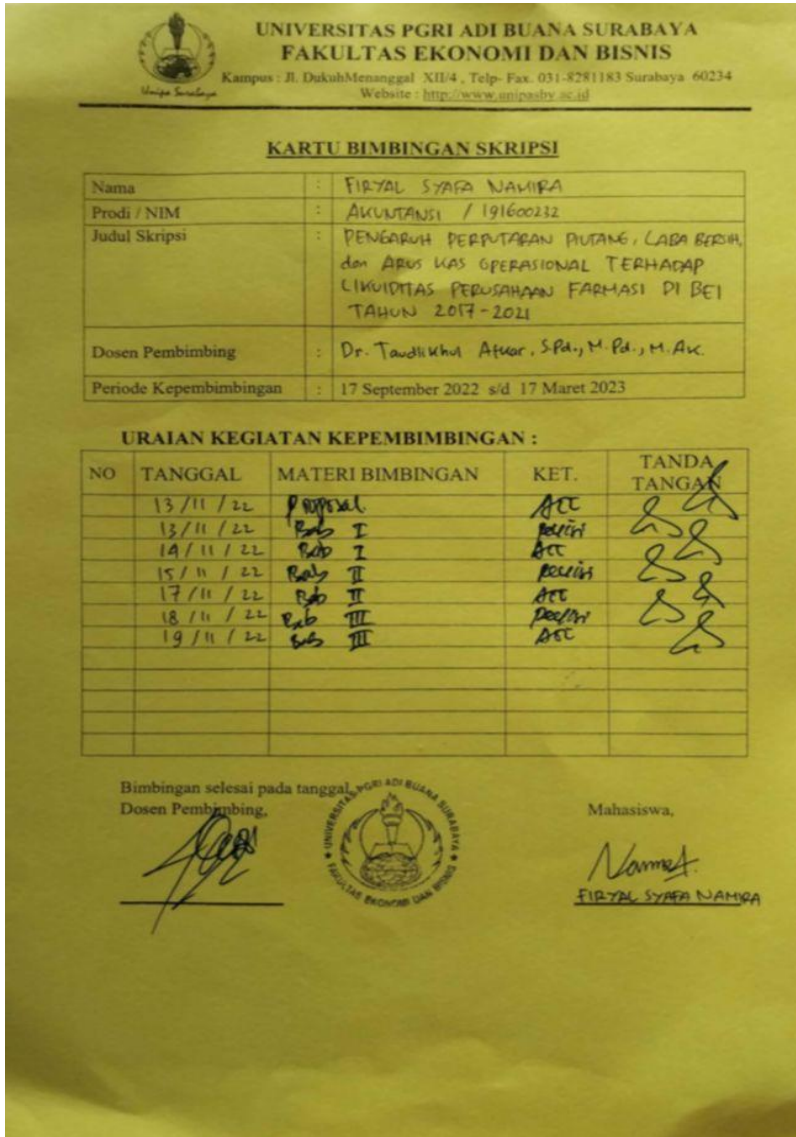 UNIVERSITAS PGRI ADI BUANA SURABAYA
FAKULTAS EKONOMI DAN BISNIS
Kampus : Jl. DukuhMenanggal XII/4 , Telp- Fax. 031-8281183 Surabaya 60234
Website : http://www.unipasby.ac.id
Unipa Surabaya
KARTU BIMBINGAN SKRIPSI
Nama : FIRYAL SYAFA NAMIRA
Prodi / NIM : AKUNTANSI / 191600232
Judul Skripsi : PENGARUH PERPUTARAN PIUTANG, LABA BERSIH,
dan ARUS KAS OPERASIONAL TERHADAP
LIKUIDITAS PERUSAHAAN FARMASI DI BEI
TAHUN 2017-2021
Dosen Pembimbing : Dr. Taudlikhul Afkar, S.Pd., M.Pd., M.Ak.
Periode Kepembimbingan : 17 September 2022 s/d 17 Maret 2023
URAIAN KEGIATAN KEPEMBIMBINGAN :
NO TANGGAL MATERI BIMBINGAN KET. TANDA TANGAN
13/11/22 Proposal ACC
13/11/22 Bab I Revisi
14/11/22 Bab I ACC
15/11/22 Bab II Revisi
17/11/22 Bab II ACC
18/11/22 Bab III Revisi
19/11/22 Bab III ACC
Bimbingan selesai pada tanggal
Dosen Pembimbing, Mahasiswa,
UNIVERSITAS PGRI ADI BUANA SURABAYA
FAKULTAS EKONOMI DAN BISNIS
FIRYAL SYAFA NAMIRA